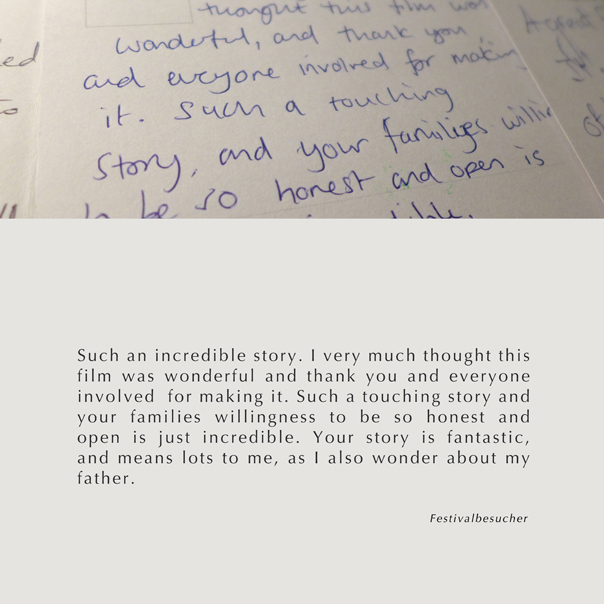 thought this film was
wonderful, and thank you
and everyone involved for making
it. Such a touching
story, and your families willin
to be so honest and open is
ed
Such an incredible story. I very much thought this
film was wonderful and thank you and everyone
involved for making it. Such a touching story and
your families willingness to be so honest and
open is just incredible. Your story is fantastic,
and means lots to me, as I also wonder about my
father.
Festivalbesucher